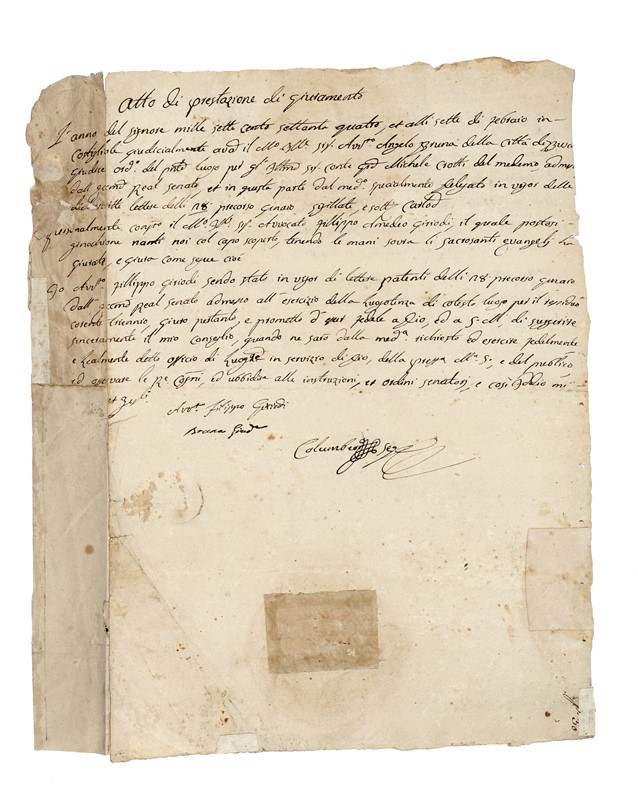 Atto di prestazione di giuramento
L'anno del signore mille sette cento settanta quatro, et alli sette di febraio in
Costigliole giudicialmente avanti il M.to Ill.re Sig. Avv.to Angelo Bruna della Città di
Giudice ord.o del p.nto luogo per gl' Ill.mo Sig. conte Michele Crotti del medemo admesso
dall' eccmo Real Senato, et in questa parte dal med.o spezialmente delegato in vigor delle
lettere delli 28 precorso genaro sigillate, e sott.e
personalmente il M.to Ill.re Sig. Avvocato Filippo Amedeo Giriodi il quale postosi
ginochione nanti noi col capo scoperto, tenendo le mani sovra li sacrosanti evangeli ha
giurato, e giura come segue cioè
Io Avv.to Filippo Giriodi sendo stato in vigor di lettere patenti delli 28 precorso genaro
dall' eccmo Real Senato admesso all' esercizio della di cotesto luogo per il
corente triennio, giuro pertanto, e prometto d' esser fedele a Dio, ed a S. M. di suggerire
sinceramente il mio Consiglio, quando ne sarò dalla med.a richiesto ed esercire fedelmente
e lealmente detto officio di in servizio di Dio, della prefa M.tà S. e del publico
ed osservare le Re ed ubbidire alle instruzioni, et ordini senatori, e così Iddio mi
Avv.to Filippo Giriodi
Bruna Giud.e
Columbo Seg.